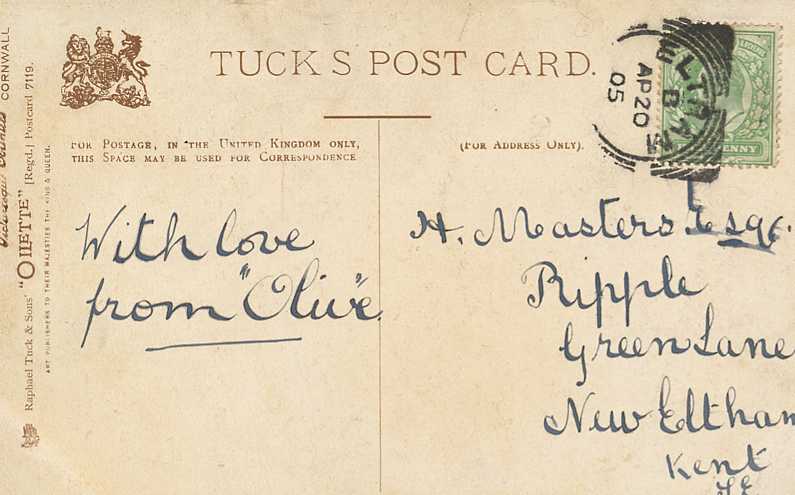 TUCK'S POST CARD.
FOR POSTAGE, IN THE UNITED KINGDOM ONLY,
THIS SPACE MAY BE USED FOR CORRESPONDENCE
(FOR ADDRESS ONLY).
With love
from "Olive".
H. Masters Esqr.
Ripple
Green Lane
New Eltham
Kent
ELTHAM
B
AP20
05
PENNY
CORNWALL
Raphael Tuck & Sons' "OILETTE" [Regd.] Postcard 7119.
ART PUBLISHERS TO THEIR MAJESTIES THE KING & QUEEN.